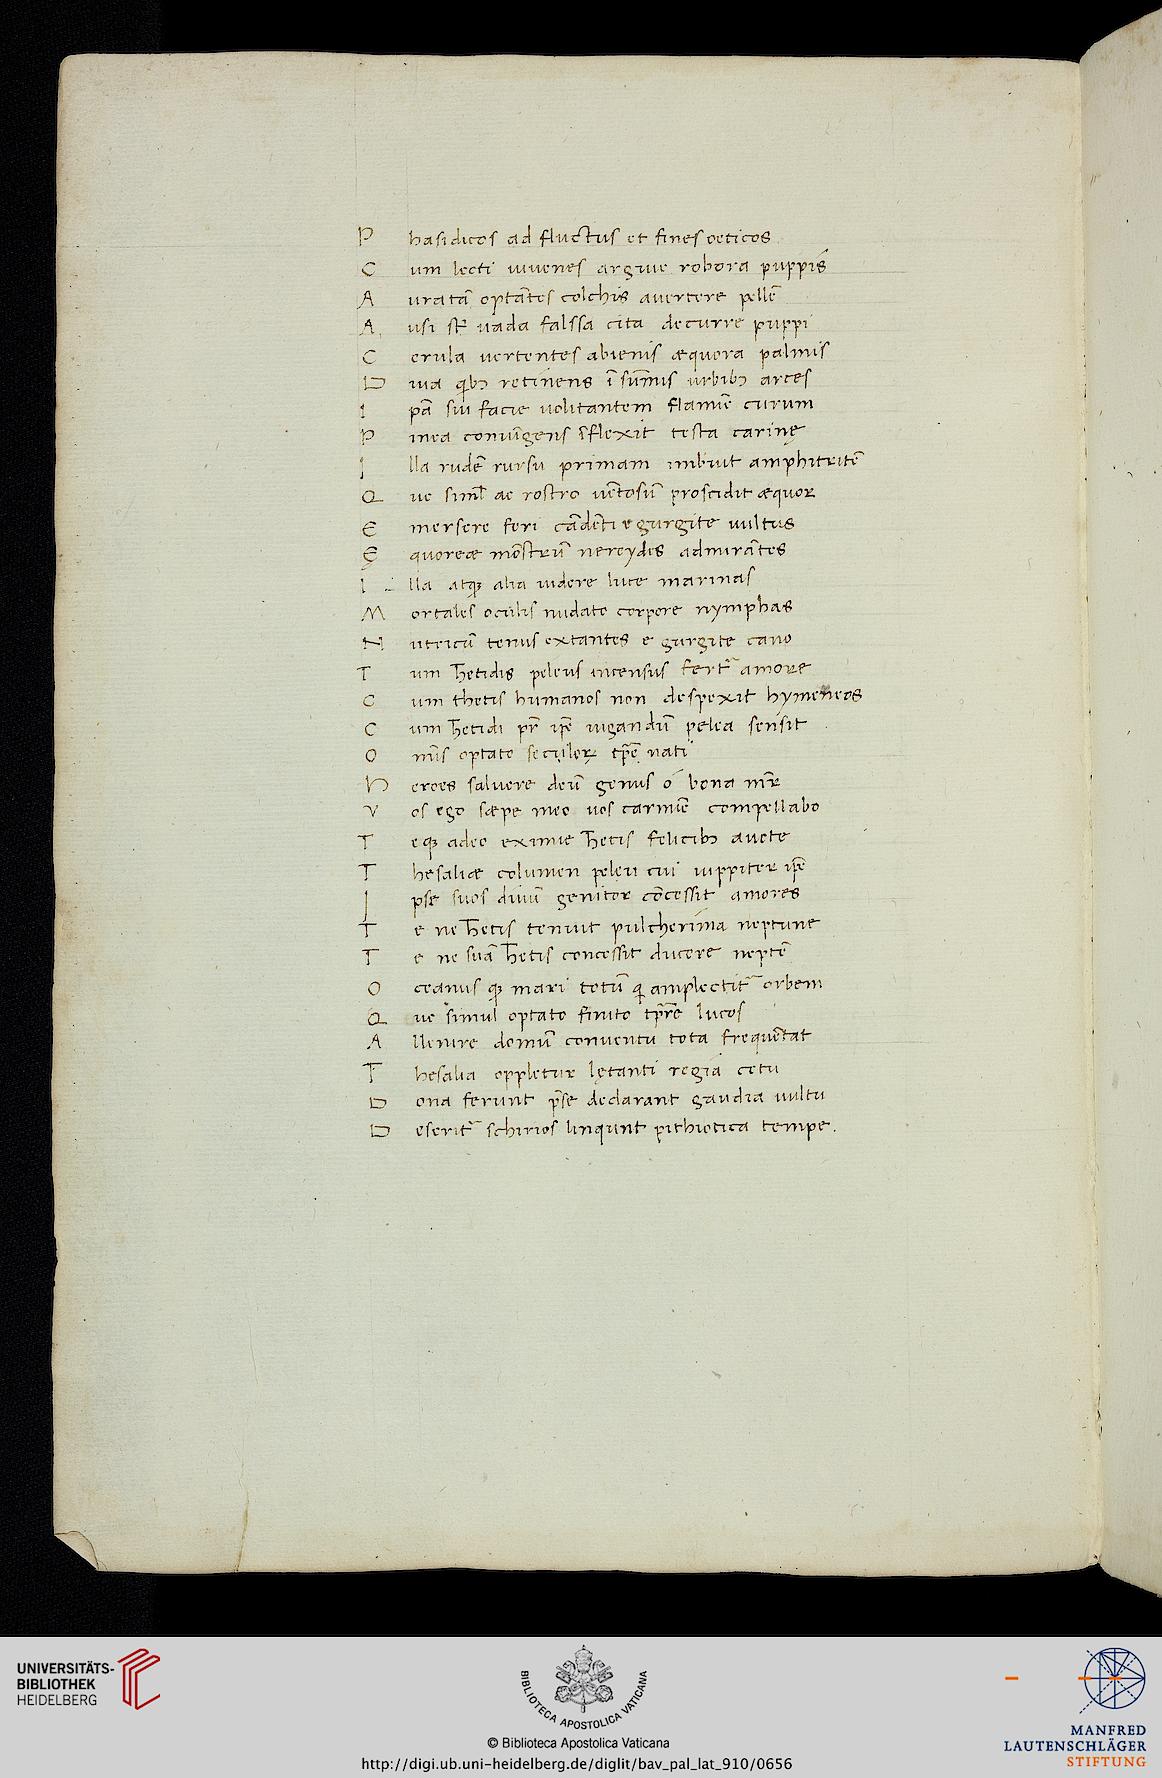 P hasidicos ad fluctus et fines oeticos
C um lecti iuuenes argiue robora puppis
A uratā optātes colchis auertere pellē
A usi st̄ uada falssa cita decurre puppi
C erula uertentes abienis æquora palmis
D iua qibꝫ retinens ī sūmis urbibꝫ arces
I psā siu facie uolitantem flamīe curum
P inea conuīgens īflexit testa carinę
I lla rudē rursu primam imbuit amphitritē
Q ue siml̄ ac rostro uētosū proscidit æquor
E mersere feri cādēti e gurgite uultus
Ę quoreæ mōstrū nereydes admirātes
I lla atqꝫ alia uidere luce marinas
M ortales oculis nudato corpore nymphas
N utricū tenus extantes e gurgite cano
T um thetidis peleus incensus fertᷣ amore
C um thetis humanos non despexit hymeneos
C um thetidi pr̄ ipē iugandū pelea sensit
O mīs optato seculoꝝ tp̄rē nati
H eroes saluere deū genus o bona mr̄
V os ego sæpe meo uos carmīe compellabo
T eqꝫ adeo eximie thetis felicibꝫ auete
T hesaliæ columen peleu cui iuppiter ipē
I pse suos diuū genitor cōcessit amores
T e ne thetis tenuit pulcherima neptune
T e ne suā thetis concessit ducere neptē
O ceanus qꝫ mari totū qi amplectitᷣ orbem
Q ue simul optato finito tp̄rē lucos
A llenire domū conuentu tota frequētat
T hesalia oppletur lętanti regia cetu
D ona ferunt p̄se declarant gaudia uultu
D eseritᷣ schirios linqunt pithiotica tempe.
UNIVERSITÄTS-
BIBLIOTHEK
HEIDELBERG
BIBLIOTECA APOSTOLICA VATICANA
© Biblioteca Apostolica Vaticana
http://digi.ub.uni-heidelberg.de/diglit/bav_pal_lat_910/0656
MANFRED
LAUTENSCHLÄGER
STIFTUNG